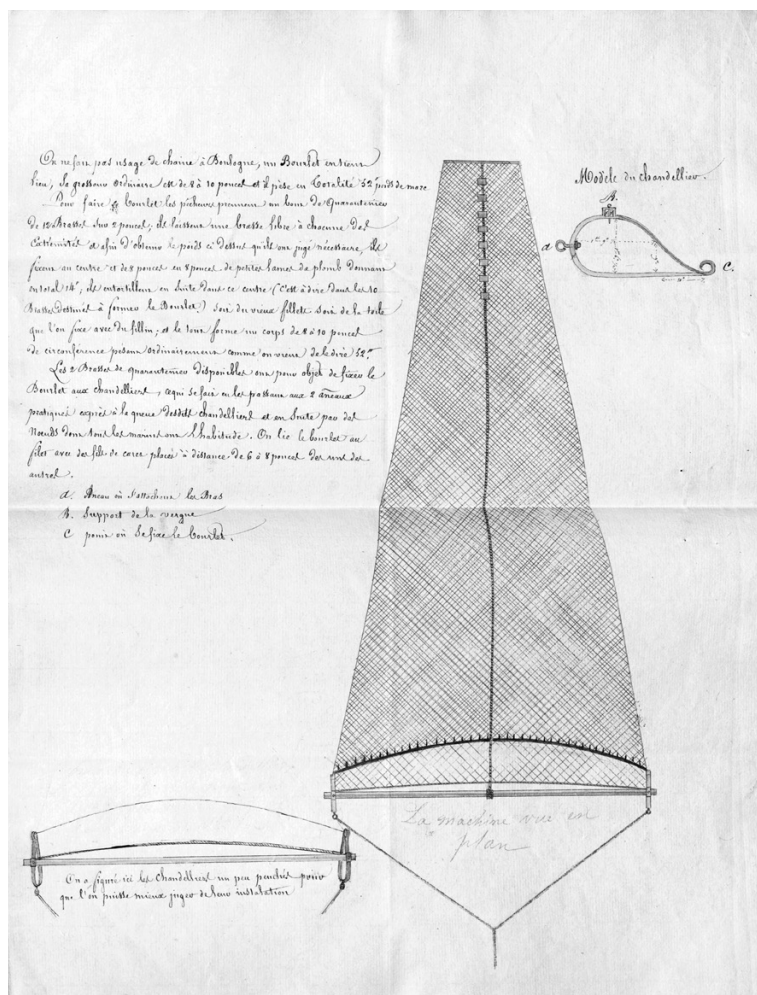 On ne fait pas usage de chaine à Boulogne, un Bourlet en tient
lieu, sa grosseur ordinaire est de 8 à 10 pouces et il pèse en totalité 52 poids de marc.
Pour faire ce bourlet les pêcheurs prennent un bout de quarantenier
de 12 Brasses sur 2 pouces; ils laissent une brasse libre à chacune des
extrémités et afin d'obtenir le poids ci dessus qu'ils ont jugé nécessaire, ils
fixent au centre et de 8 pouces en 8 pouces de petites lames de plomb donnant
en total 14#, ils entortillent en suite dans ce centre (c'est à dire dans les 10
Brasses destinées à former le Bourlet) soit du vieux fillet soit de la toile
que l'on fixe avec du fillin; et le tout forme un corps de 8 à 10 pouces
de circonférence pesant ordinairement comme on vient de le dire 52#.
Les 2 Brasses de quarantenier disponibles ont pour objet de fixer le
Bourlet aux chandelliers, ce qui se fait en les passant aux 2 anneaux
pratiqués exprès à la queue desdits chandelliers et en suite par des
noeuds dont tous les marins ont l'habitude. On lie le bourlet au
filet avec des fils de caret placés à distance de 6 à 8 pouces les uns des
autres.
a. Anneau où s'attachent les Bras
B. Support de la vergue
C point où se fixe le bourlet.
Modèle du chandellier.
B.
a
C.
La machine vue en
plan
On a figuré ici les chandelliers un peu penchés pour
que l'on puisse mieux juger de leur installation